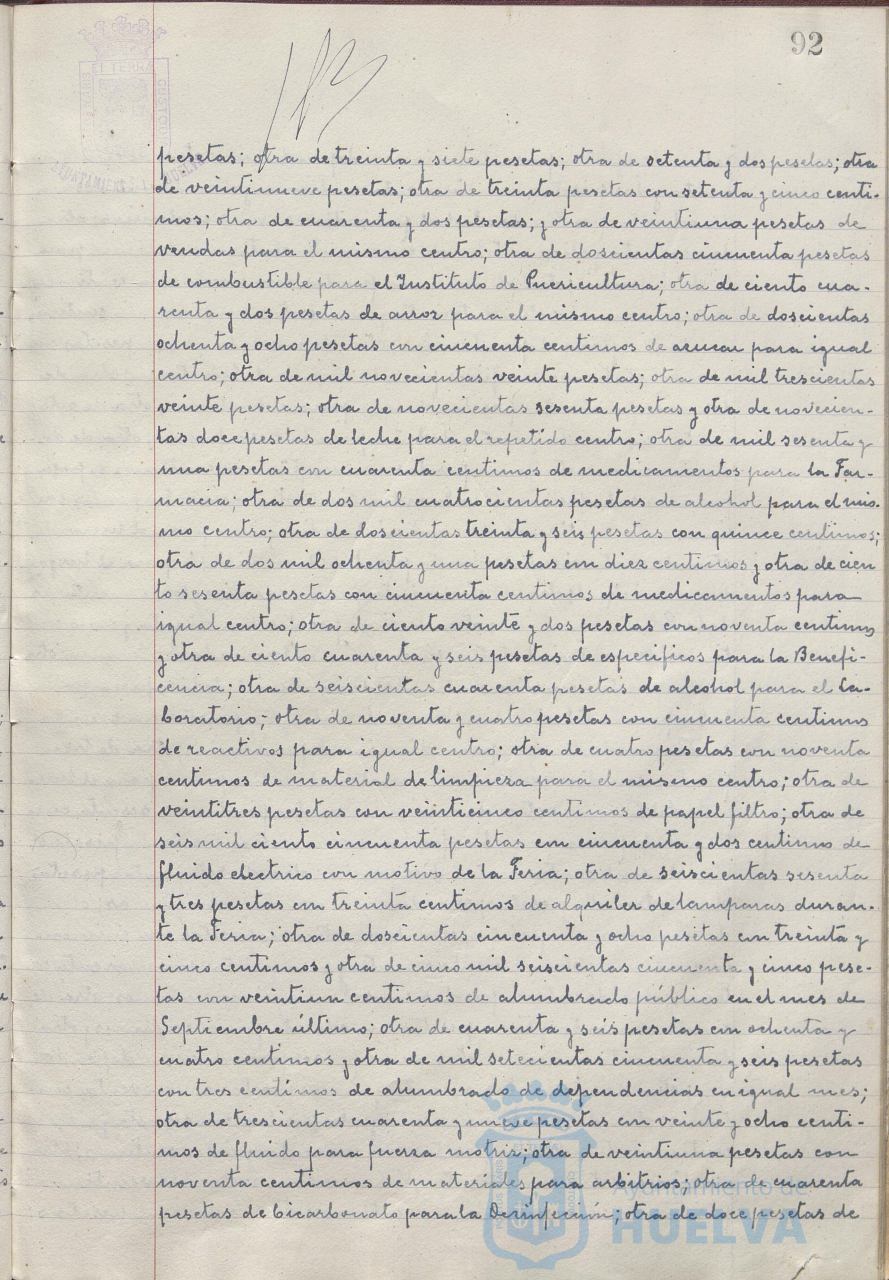 92
pesetas; otra de treinta y siete pesetas; otra de setenta y dos pesetas; otra
de veintinueve pesetas; otra de treinta pesetas con setenta y cinco centi-
mos; otra de cuarenta y dos pesetas; y otra de veintiuna pesetas de
vendas para el mismo centro; otra de doscientas cincuenta pesetas
de combustible para el Instituto de Puericultura; otra de ciento cua-
renta y dos pesetas de arroz para el mismo centro; otra de doscientas
ochenta y ocho pesetas con cincuenta centimos de azucar para igual
centro; otra de mil novecientas veinte pesetas; otra de mil trescientas
veinte pesetas; otra de novecientas sesenta pesetas y otra de novecien-
tas doce pesetas de leche para el repetido centro; otra de mil sesenta y
una pesetas con cuarenta centimos de medicamentos para la Far-
macia; otra de dos mil cuatrocientas pesetas de alcohol para el mis-
mo centro; otra de doscientas treinta y seis pesetas con quince centimos;
otra de dos mil ochenta y una pesetas con diez centimos y otra de cien
to sesenta pesetas con cincuenta centimos de medicamentos para
igual centro; otra de ciento veinte y dos pesetas con noventa centimos
y otra de ciento cuarenta y seis pesetas de especificos para la Benefi-
cencia; otra de seiscientas cuarenta pesetas de alcohol para el La-
boratorio; otra de noventa y cuatro pesetas con cincuenta centimos
de reactivos para igual centro; otra de cuatro pesetas con noventa
centimos de material de limpieza para el mismo centro; otra de
veintitres pesetas con veinticinco centimos de papel filtro; otra de
seis mil ciento cincuenta pesetas con cincuenta y dos centimos de
fluido electrico con motivo de la Feria; otra de seiscientas sesenta
y tres pesetas con treinta centimos de alquiler de lamparas duran-
te la Feria; otra de doscientas cincuenta y ocho pesetas con treinta y
cinco centimos y otra de cinco mil seiscientas cincuenta y cinco pese-
tas con veintiun centimos de alumbrado público en el mes de
Septiembre último; otra de cuarenta y seis pesetas con ochenta y
cuatro centimos y otra de mil setecientas cincuenta y seis pesetas
con tres centimos de alumbrado de dependencias en igual mes;
otra de trescientas cuarenta y nueve pesetas con veinte y ocho centi-
mos de fluido para fuerza motriz; otra de veintiuna pesetas con
noventa centimos de materiales para arbitrios; otra de cuarenta
pesetas de bicarbonato para la Desinfección; otra de doce pesetas de
Ayuntamiento de
HUELVA